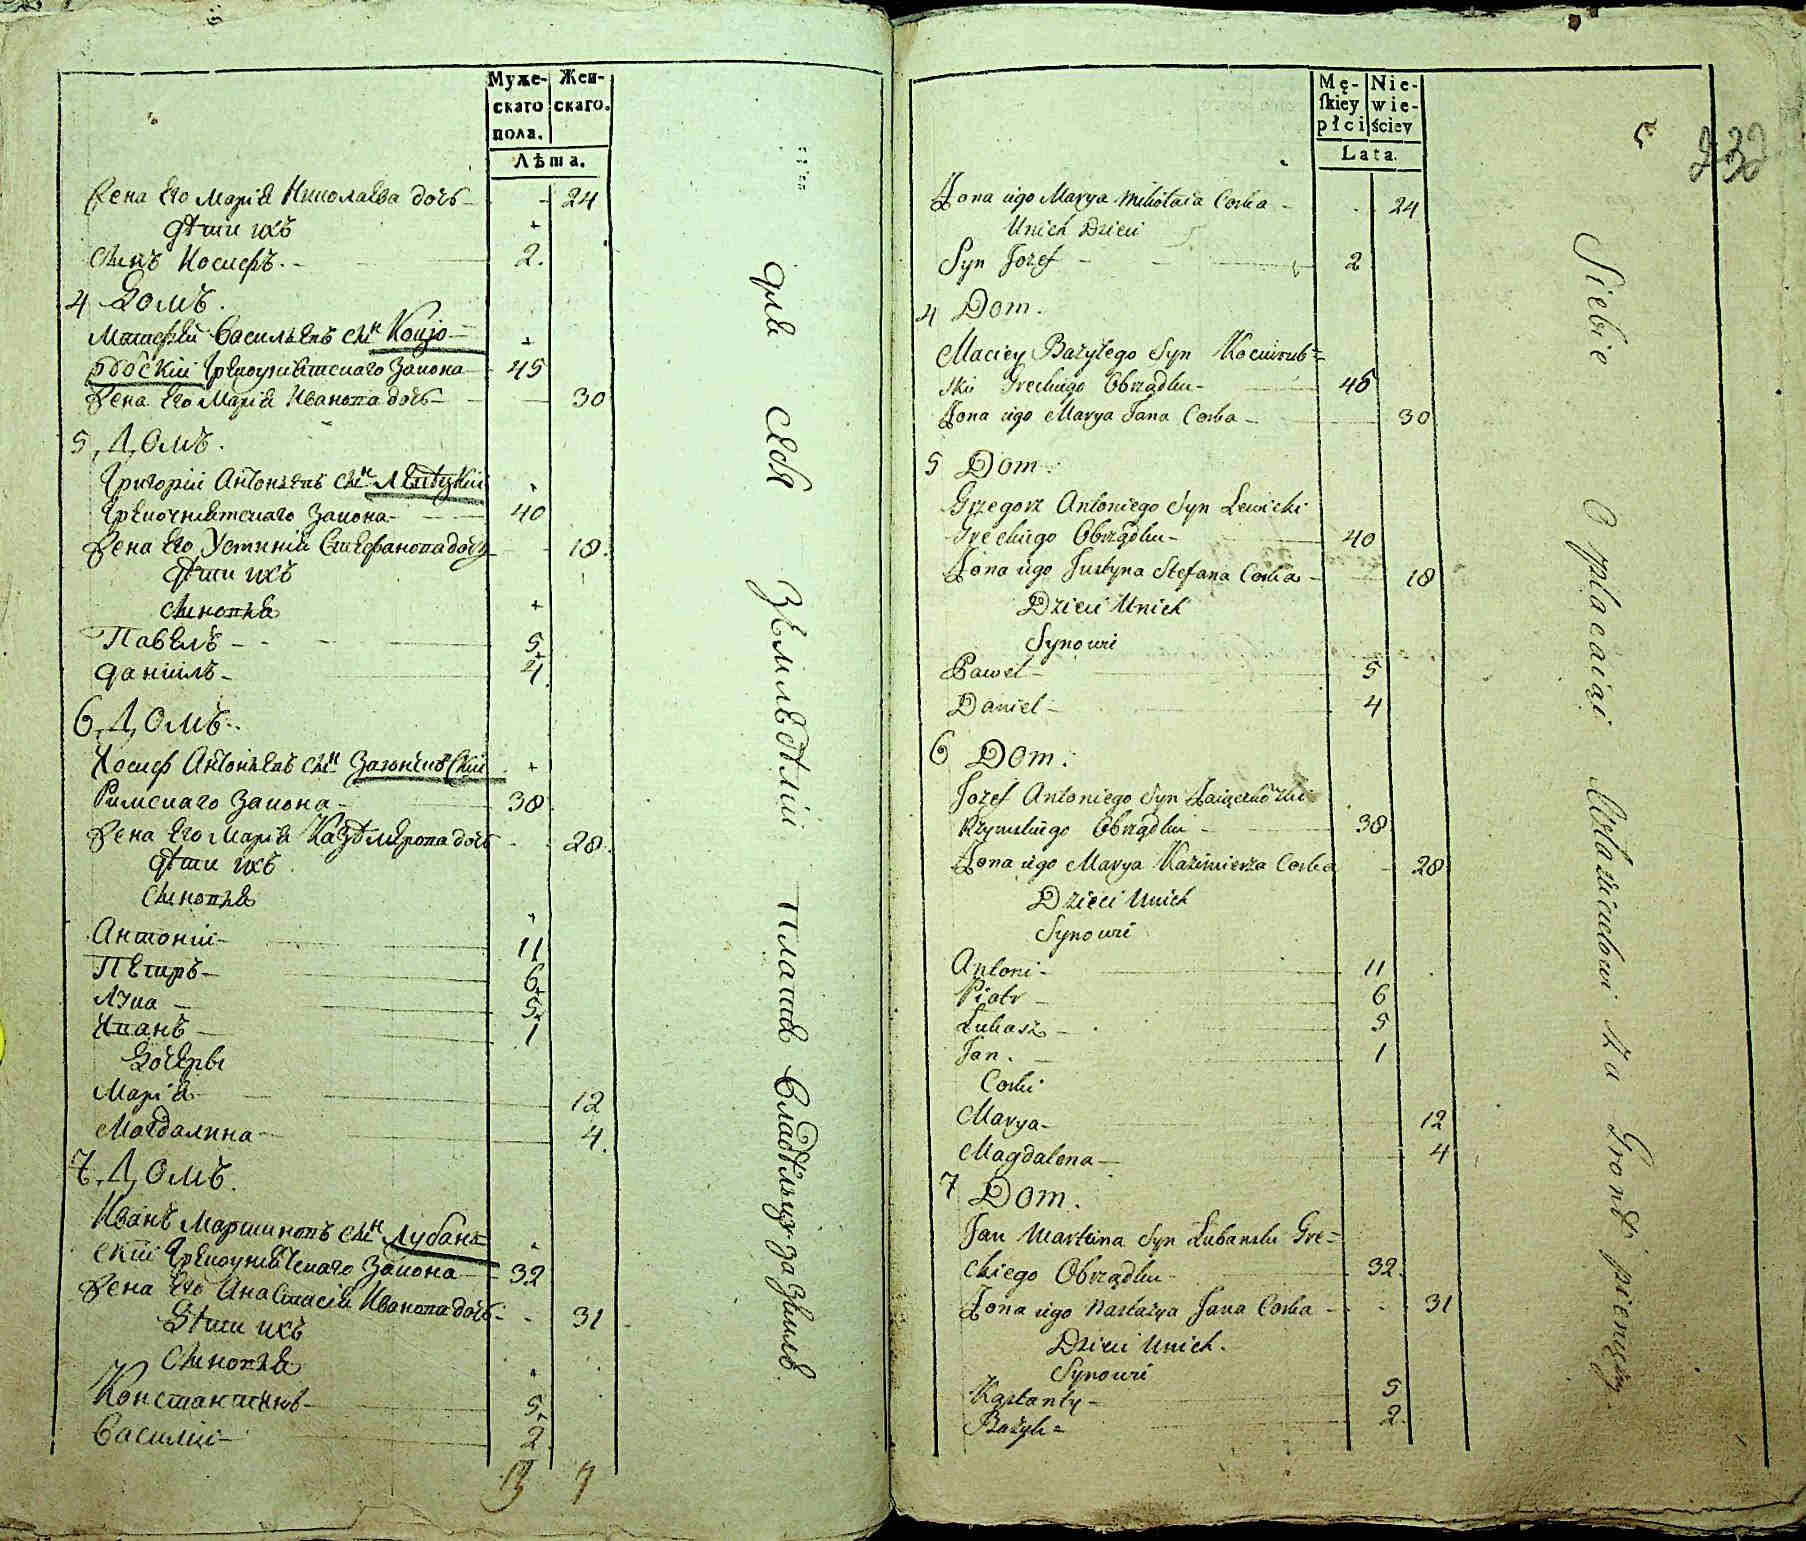 Муже-
скаго
пола.
Жен-
скаго.
Лѣта.
Жена Его Марія Николаева дочь 24
Дѣти ихъ
Сынъ Иосифъ. 2.
4 Домъ.
Матфей Васильевъ сынъ Коцю-
бѣскій Грекоуніятскаго Закона 45
Жена Его Марія Иванова дочь 30
5, Домъ.
Григорій Антоньевъ сынъ Левицкій
Грекоуніятскаго Закона 40
Жена Его Устинія Стефанова дочь 18.
Дѣти ихъ
Сыновья
Павелъ 5
Даніилъ 4
6, Домъ.
Иосиф Антоньевъ сынъ
Римскаго Закона 38
Жена Его Марія Казімерова дочь 28.
Дѣти ихъ
Сыновья
Антоній 11
Петръ 6
Лука 5
Иванъ 1
Дочеры
Марія 12
Магдалина 4.
7, Домъ.
Иванъ Мартиновъ сынъ Лубань=
скій Грекоуніятскаго Закона 32
Жена Его Анастасія Иванова дочь 31
Дѣти ихъ
Сыновья
Константинъ 5
Василій 2
13 7
для себя земледѣліи платя владѣльцу за землю.
Mę-
ſkiey
płci
Nie-
wie-
ściey
Lata.
232
Żona iego Marya Mikołaia Corka 24
Unich Dzieci
Syn Jozef 2
4 Dom.
Maciey Bazylego Syn Kociurub=
ski Greckiego Obrządku 45
Żona iego Marya Jana Corka 30
5 Dom.
Grzegorz Antoniego Syn Lewicki
Greckiego Obrządku 40
Żona iego Justyna Stefana Corka 18
Dzieci Unich
Synowi
Paweł 5
Daniel 4
6 Dom.
Jozef Antoniego Syn
Rzymskiego Obrządku 38
Żona iego Marya Kazimierza Corka 28
Dzieci Unich
Synowi
Antoni 11
Piotr 6
Łukasz 5
Jan. 1
Corki
Marya 12
Magdalena 4
7 Dom.
Jan Martina Syn Łubanski Gre=
ckiego Obrządku 32.
Żona iego Nastazya Jana Corka 31
Dzieci Unich.
Synowi
Kastanty 5
Bazyli= 2.
Siebie Opłacaiąc Własicielowi Za Gront pieniędzy